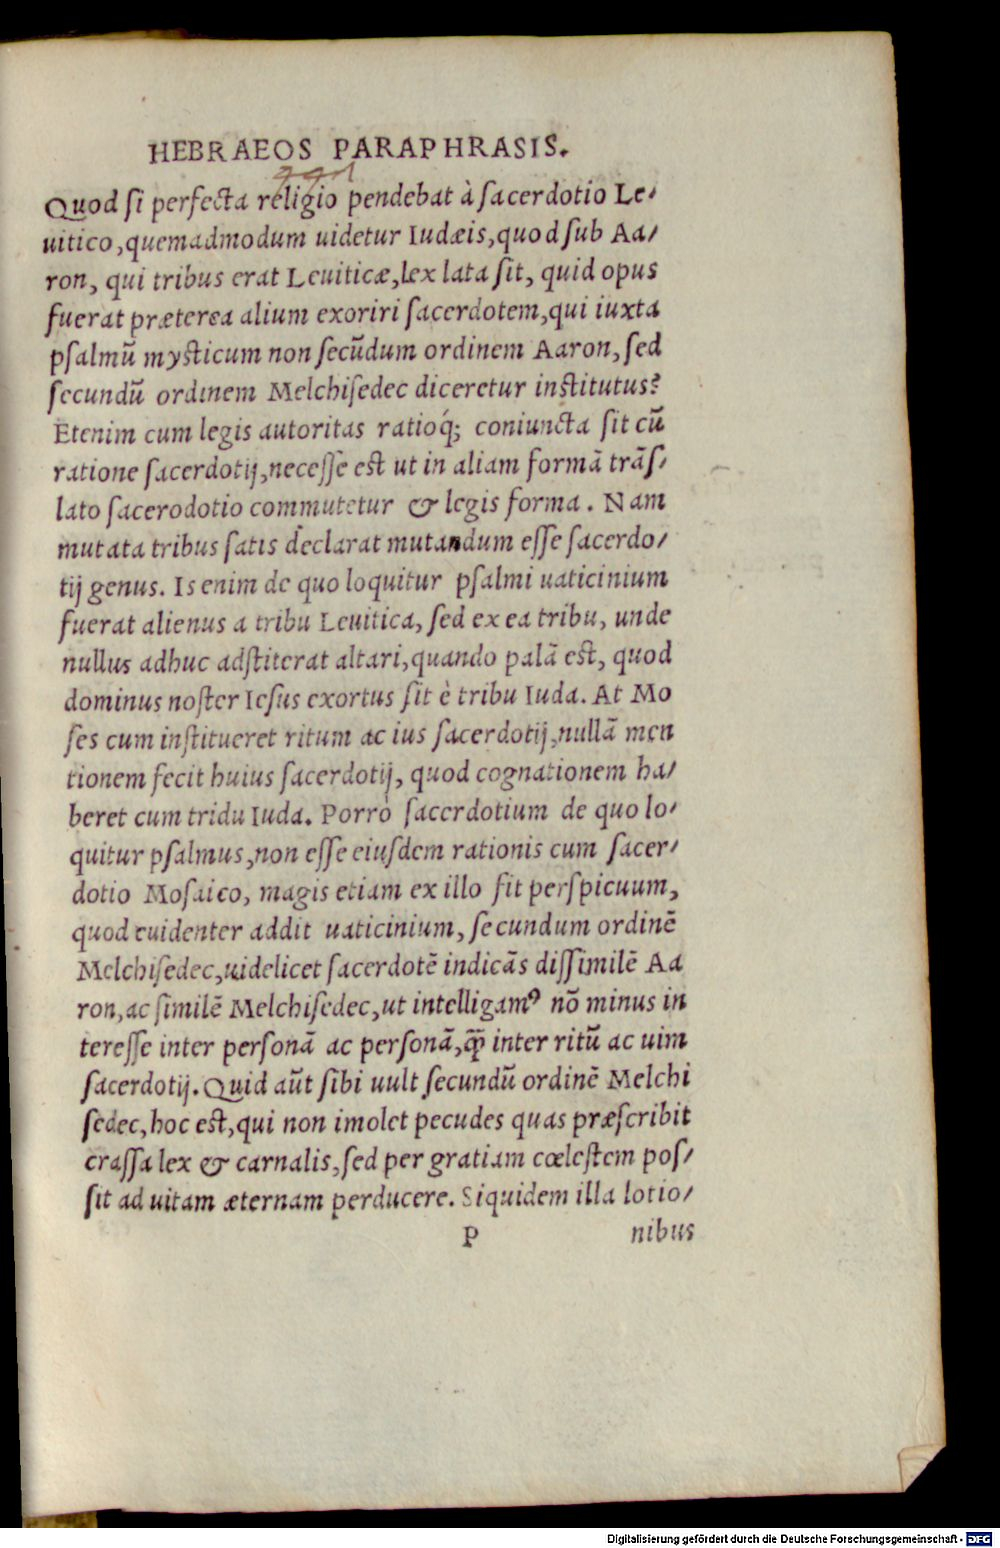 HEBRAEOS PARAPHRASIS.
Quod ſi perfecta religio pendebat à ſacerdotio Le⸗
uitico, quemadmodum uidetur Iudæis, quod ſub Aa⸗
ron, qui tribus erat Leuiticæ, lex lata ſit, quid opus
fuerat præterea alium exoriri ſacerdotem, qui iuxta
pſalmū myſticum non ſecūdum ordinem Aaron, ſed
ſecundū ordinem Melchiſedec diceretur inſtitutus?
Etenim cum legis autoritas ratioq́; coniuncta ſit cū
ratione ſacerdotij, neceſſe eſt ut in aliam formā trāſ⸗
lato ſacerodotio commutetur & legis forma. Nam
mutata tribus ſatis declarat mutandum eſſe ſacerdo⸗
tij genus. Is enim de quo loquitur pſalmi uaticinium
fuerat alienus a tribu Leuitica, ſed ex ea tribu, unde
nullus adhuc adſtiterat altari, quando palā eſt, quod
dominus noſter Ieſus exortus ſit è tribu Iuda. At Mo
ſes cum inſtitueret ritum ac ius ſacerdotij, nullā men
tionem fecit huius ſacerdotij, quod cognationem ha⸗
beret cum tridu Iuda. Porrò ſacerdotium de quo lo⸗
quitur pſalmus, non eſſe eiuſdem rationis cum ſacer⸗
dotio Moſaico, magis etiam ex illo fit perſpicuum,
quod euidenter addit uaticinium, ſecundum ordinē
Melchiſedec, uidelicet ſacerdotē indicās diſſimilē Aa
ron, ac ſimilē Melchiſedec, ut intelligamꝰ nō minus in
tereſſe inter perſonā ac perſonā, q̄ꝫ inter ritū ac uim
ſacerdotij. Quid aūt ſibi uult ſecundū ordinē Melchi
ſedec, hoc eſt, qui non imolet pecudes quas præſcribit
craſſa lex & carnalis, ſed per gratiam cœleſtem poſ⸗
ſit ad uitam æternam perducere. Siquidem illa lotio⸗
P nibus
Digitalisierung gefördert durch die Deutsche Forschungsgemeinschaft - DFG